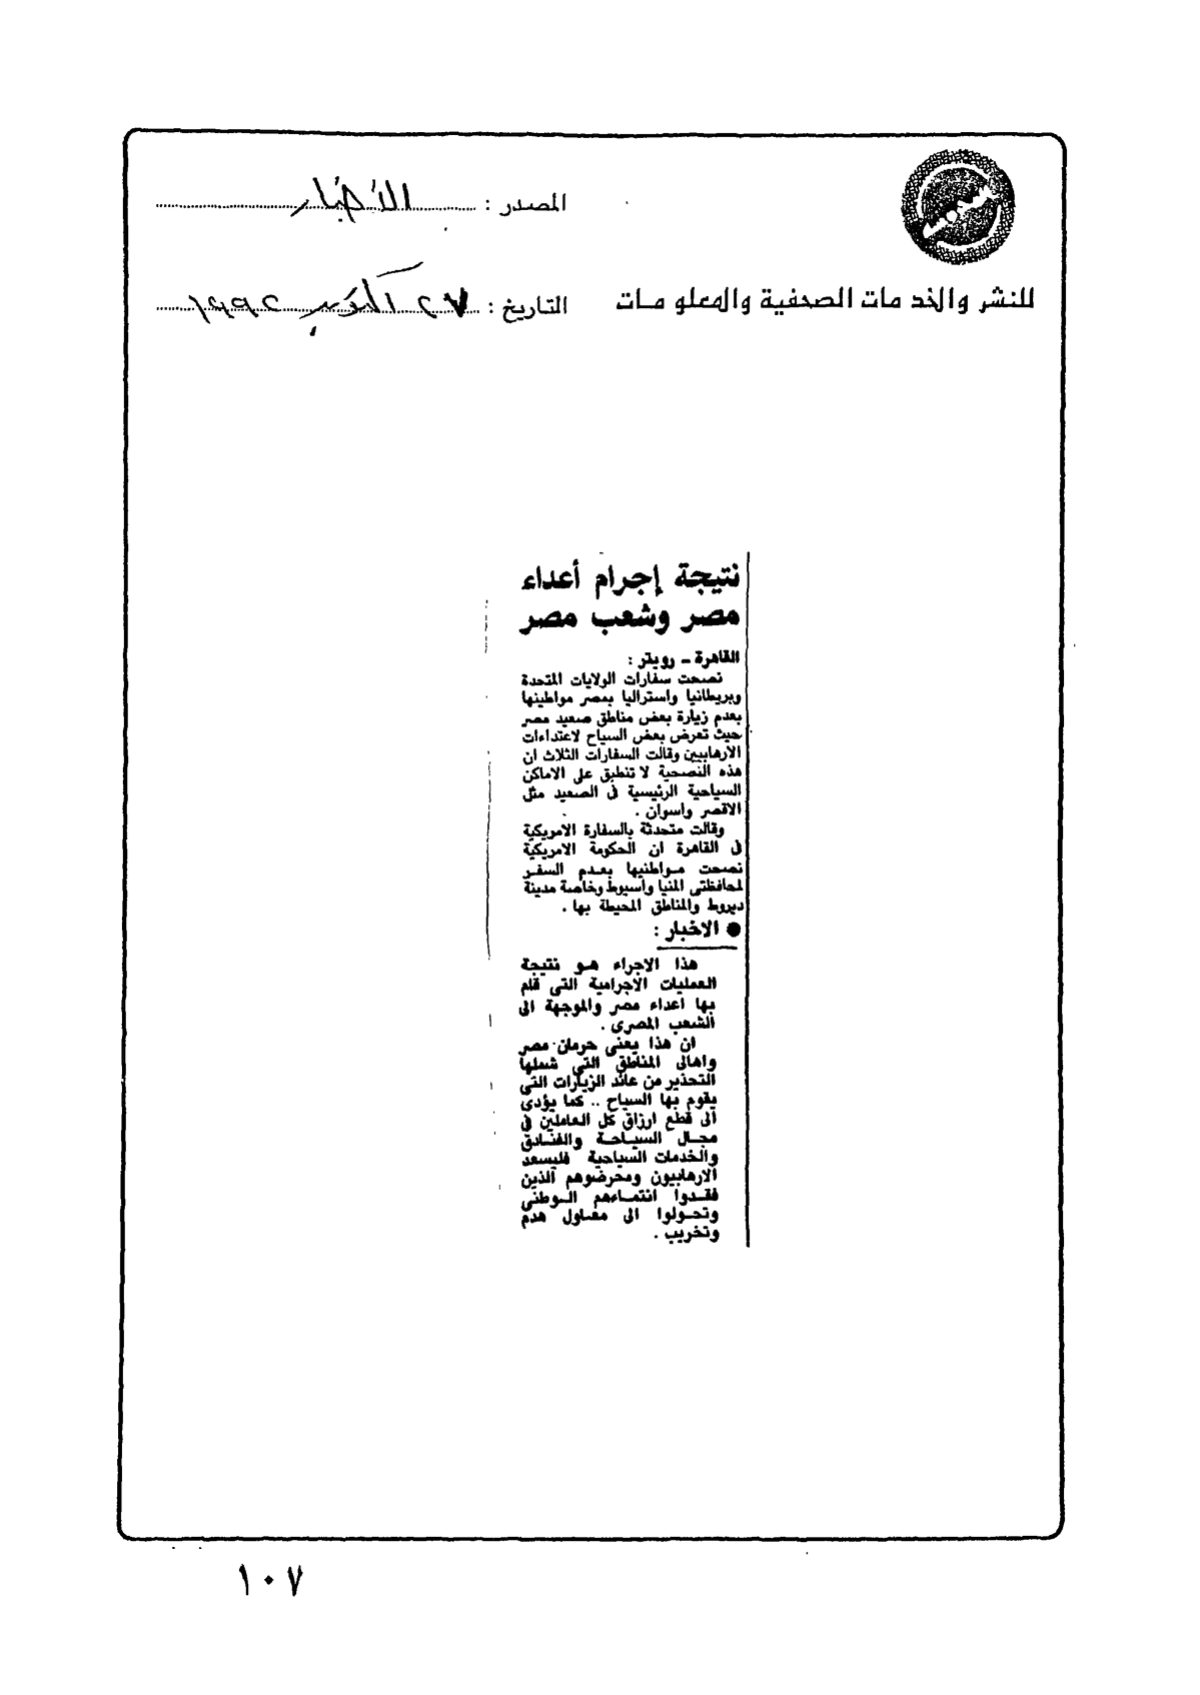 المصدر : الأخبار
للنشر والخدمات الصحفية والمعلومات
التاريخ : ٢٧ أكتوبر ١٩٩٢
نتيجة إجرام أعداء
مصر وشعب مصر
القاهرة - رويتر :
نصحت سفارات الولايات المتحدة
وبريطانيا واستراليا بمصر مواطنيها
بعدم زيارة بعض مناطق صعيد مصر
حيث تعرض بعض السياح لاعتداءات
الارهابيين وقالت السفارات الثلاث ان
هذه النصحية لا تنطبق على الاماكن
السياحية الرئيسية فى الصعيد مثل
الاقصر واسوان .
وقالت متحدثة بالسفارة الامريكية
فى القاهرة ان الحكومة الامريكية
نصحت مواطنيها بعدم السفر
لمحافظتى المنيا وأسيوط وخاصة مدينة
ديروط والمناطق المحيطة بها .
● الاخبار :
هذا الاجراء هو نتيجة
العمليات الاجرامية التى قام
بها أعداء مصر والموجهة الى
الشعب المصرى .
ان هذا يعنى حرمان مصر
واهالى المناطق التي شملها
التحذير من عائد الزيارات التى
يقوم بها السياح .. كما يؤدى
الى قطع ارزاق كل العاملين فى
مجال السياحة والفنادق
والخدمات السياحية فليسعد
الارهابيون ومحرضوهم الذين
فقدوا انتماءهم الوطنى
وتحولوا الى معاول هدم
وتخريب .
١٠٧